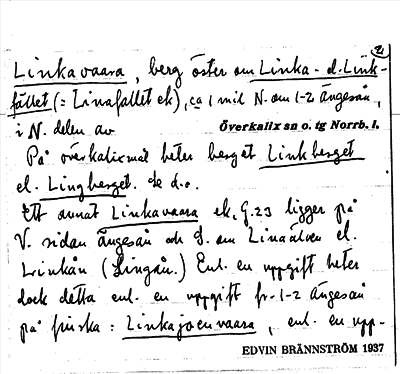 21
Linkavaara, berg öster om Linka- el. Link-
fället (= Linafallet ek), ca 1 mil N. om 1-2 Ängesån,
i N. delen av Överkalix sn o. tg Norrb. l.
På överkalixmål heter berget Linkberget
el. Lingberget. Se d.o.
Ett annat Linkavaara ek, G. 23 ligger på
V. sidan Ängesån och S. om Linaälven el.
Linkån (Lingån.) Enl. en uppgift heter
dock detta enl. en uppgift fr. 1-2 Ängesån
på finska: Linkajoenvaara, enl. en upp-
EDVIN BRÄNNSTRÖM 1937